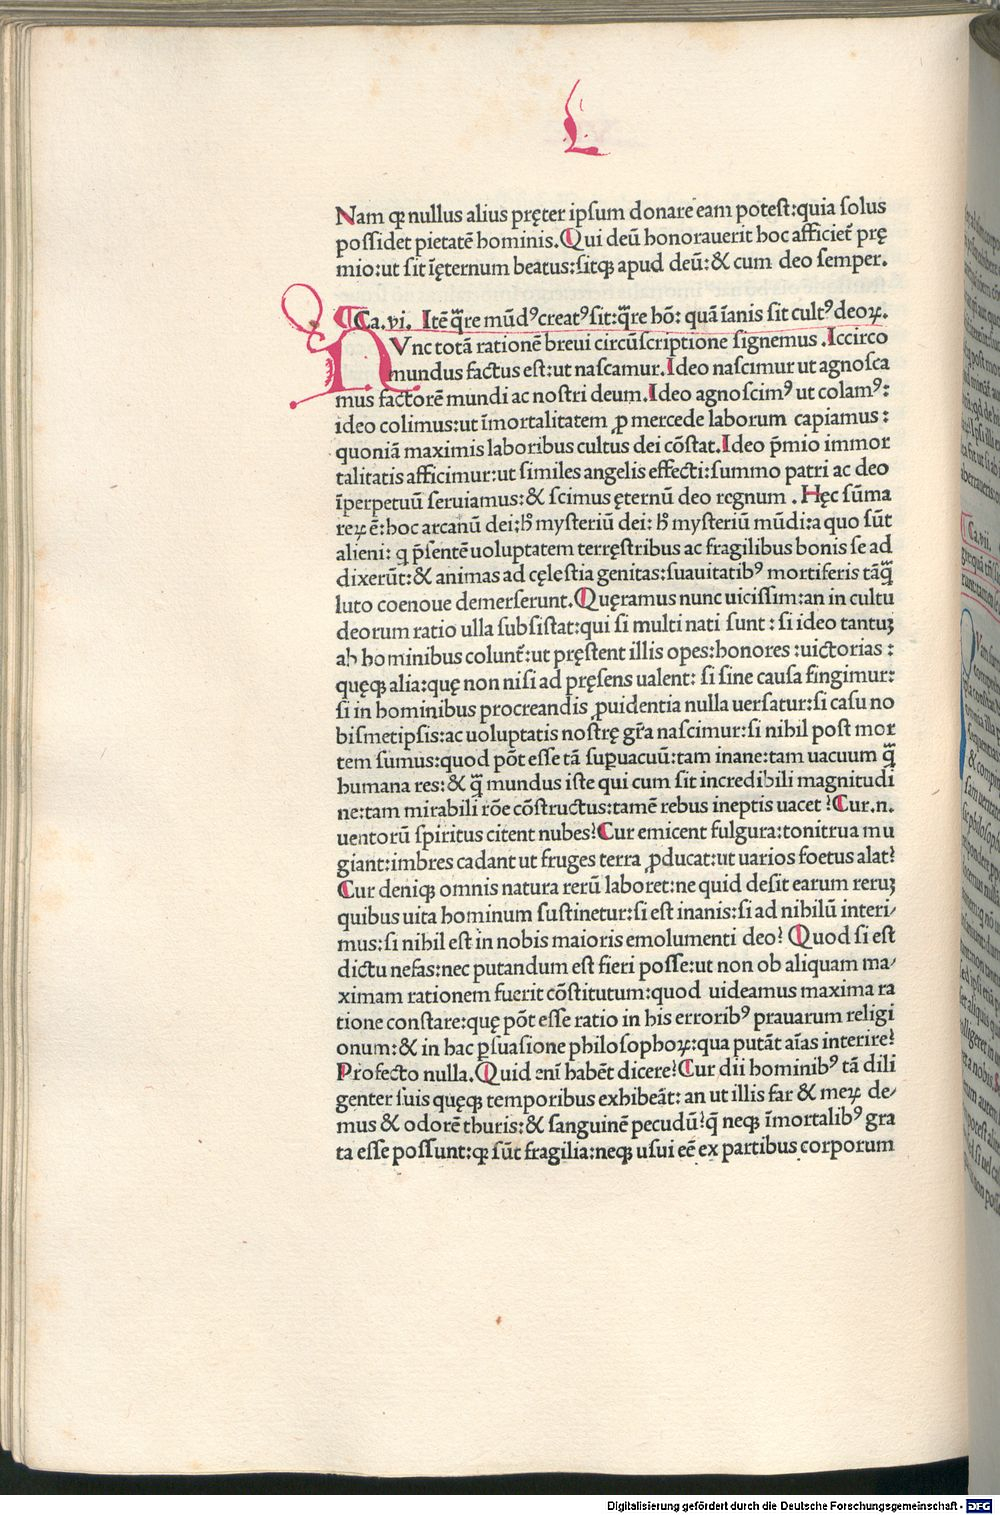 L
Nam ꝙ nullus alius pręter ipsum donare eam potest:quia solus
possidet pietatē hominis.Qui deū honorauerit hoc afficiet̄ prę
mio:ut sit īęternum beatus:sitqꝫ apud deū:& cum deo semper.
¶Ca.vi. Itē q̄re mūdꝰ creatꝰ sit:q̄re hō: quā īanis sit cultꝰ deoꝝ.
NVnc totā rationē breui circūscriptione signemus .Iccirco
mundus factus est:ut nascamur.Ideo nascimur ut agnosca
mus factorē mundi ac nostri deum.Ideo agnoscimꝰ ut colamꝰ:
ideo colimus:ut īmortalitatem ꝓ mercede laborum capiamus :
quoniā maximis laboribus cultus dei cōstat.Ideo p̄mio immor
talitatis afficimur:ut similes angelis effecti:summo patri ac deo
īperpetuū seruiamus:& scimus ęternū deo regnum .Hęc sūma
reꝝ ē:hoc arcanū dei:h̄ mysteriū dei: h̄ mysteriū mūdi:a quo sūt
alieni: q p̄sentē uoluptatem terręstribus ac fragilibus bonis se ad
dixerūt:& animas ad cęlestia genitas:suauitatibꝰ mortiferis tāq̄
luto coenoue demerserunt.Quęramus nunc uicissim:an in cultu
deorum ratio ulla subsistat:qui si multi nati sunt : si ideo tantuꝫ
ab hominibus colunt̄:ut pręstent illis opes:honores :uictorias :
quęqꝫ alia:quę non nisi ad pręsens ualent: si sine causa fingimur:
si in hominibus procreandis ꝓuidentia nulla uersatur:si casu no
bismetipsis:ac uoluptatis nostrę gr̄a nascimur:si nihil post mor
tem sumus:quod pōt esse tā suꝑuacuū:tam inane:tam uacuum q̄
humana res:& q̄ mundus iste qui cum sit incredibili magnitudi
ne:tam mirabili rōe cōstructus:tamē rebus ineptis uacet?Cur.n.
uentorū spiritus citent nubes?Cur emicent fulgura:tonitrua mu
giant:imbres cadant ut fruges terra ꝓducat:ut uarios foetus alat?
Cur deniqꝫ omnis natura rerū laboret:ne quid desit earum reruꝫ
quibus uita hominum sustinetur:si est inanis:si ad nihilū interi/
mus:si nihil est in nobis maioris emolumenti deo? Quod si est
dictu nefas:nec putandum est fieri posse:ut non ob aliquam ma/
ximam rationem fuerit cōstitutum:quod uideamus maxima ra
tione constare:quę pōt esse ratio in his erroribꝰ prauarum religi
onum:& in hac ꝑsuasione philosophoꝝ:qua putāt aīas interire?
Profecto nulla.Quid enī habēt dicere?Cur dii hominibꝰ tā dili
genter suis quęqꝫ temporibus exhibeāt: an ut illis far & meꝝ de/
mus & odorē thuris:& sanguinē pecudū?q̄ neqꝫ īmortalibꝰ gra
ta esse possunt:ꝙ sūt fragilia:neqꝫ usui eē ex partibus corporum
Ca.vii.
Digitalisierung gefördert durch die Deutsche Forschungsgemeinschaft - DFG